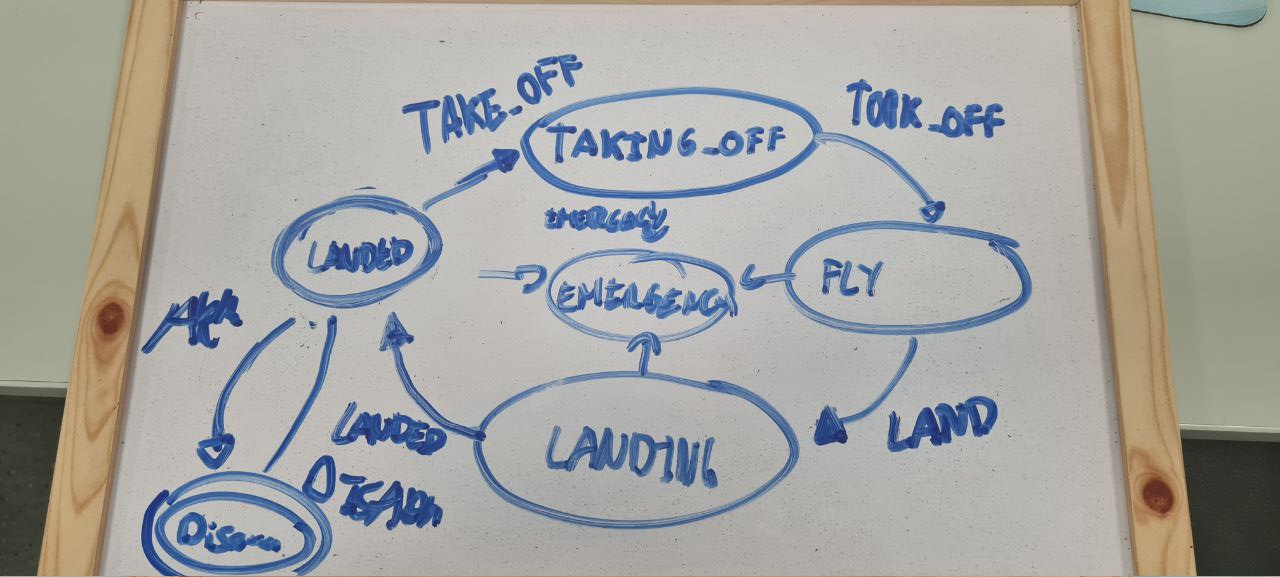 TAKE_OFF
TAKING_OFF
TOOK_OFF
LANDED
EMERGENCY
EMERGENCY
FLY
ARM
LANDED
LANDING
LAND
DISARM
Disarm